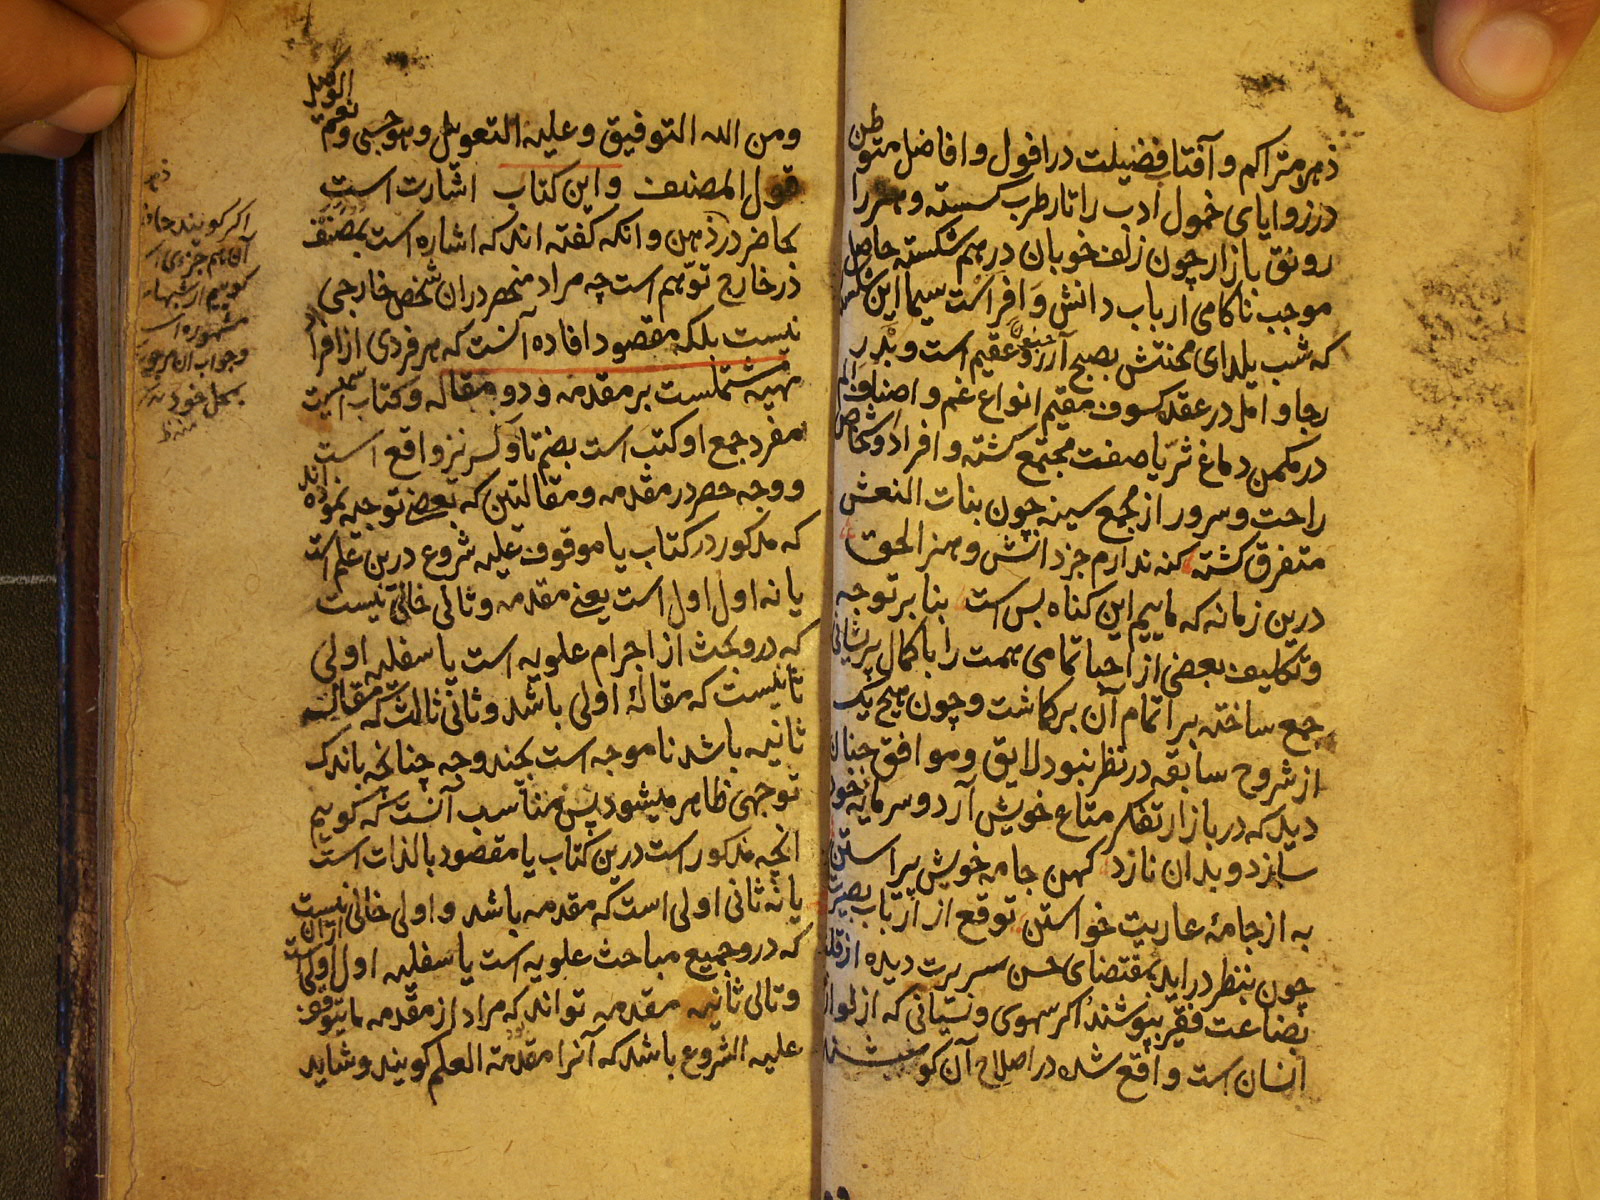 ذهر متراکم و آفتاب فضیلت در افول و افاضل متوطن
در زوایای خمول ادب را تار طرب کسسته و هنر را
رونق بازار چون زلف خوبان درهم شکسته حاصل
موجب ناکامی ارباب دانش و افراست سیما این شکسته
که شب یلدای محنتش بصبح آرزو عقیم است و بدر
رجا و امل در عقده کسوف مقیم انواع غم و اصناف الم
در مکمن دماغ ثریا صفت مجتمع کشته و افراد و اشخاص
راحت و سرور از مجمع سینه چون بنات النعش
متفرق کشته کنه ندارم جز دانش و هنر الحق
درین زمانه که ماییم این کناه بس است بنا بر توجه
و تکلیف بعضی از احبا تمامی همت را با کمال پریشانی
جمع ساخته بر اتمام آن برکماشت و چون هیچ یک
از شروح سابقه در نظر نبود لایق و موافق چنان
دید که در بازار تفکر متاع خویش آرد و سرمایه خود
سازد و بدان نازد کهن جامه خویش پیراستن
به از جامهٔ عاریت خواستن توقع از ارباب بصیرت
چون بنظر در آید بمقتضای حسن سریرت دیده از قلت
بضاعت فقیر بپوشند و اکر سهوی و نسیانی که از لوازم
انسان است واقع شده در اصلاح آن کوشند
ومن الله التوفیق وعلیه التعویل وهو حسبی ونعم الوکیل
قول المصنف و این کتاب اشارت است
بحاضر در ذهن و انکه کفته اند که اشاره است بمصنف
در خارج توهم است چه مراد منحصر در ان شخص خارجی
نیست بلکه مقصود افاده آنست که هر فردی از افراد
مشتملست بر مقدمه و دو مقاله و کتاب
مفرد جمع او کتب است بضم تا و کسر نیز واقع است
و وجه حصر در مقدمه و مقالتین که بعضی توجیه نموده اند
که مذکور در کتاب یا موقوف علیه شروع درین علم است
یا نه اول اول است یعنی مقدمه و ثانی خالی نیست
که درو بحث از اجرام علویه است یا سفلیه اولی
ثانیست که مقالهٔ اولی باشد و ثانی ثالث که مقاله
ثانیه باشد ناموجه است بچند وجه چنانچه باندک
توجهی ظاهر میشود پس مناسب آنست که کوییم
انچه مذکور است درین کتاب یا مقصود بالذات است
یا نه ثانی اولی است که مقدمه باشد و اولی خالی نیست از ان
که درو جمیع مباحث علویه است یا سفلیه اول اولی است
و ثانی ثانیه مقدمه تواند که مراد از مقدمه ما یتوقف
علیه الشروع باشد که آنرا مقدمة العلم کویند و شاید
اکر کویند
آن هم جزوی
کوییم از شبهات
مشهوره است
و جواب ان
بمحل خود